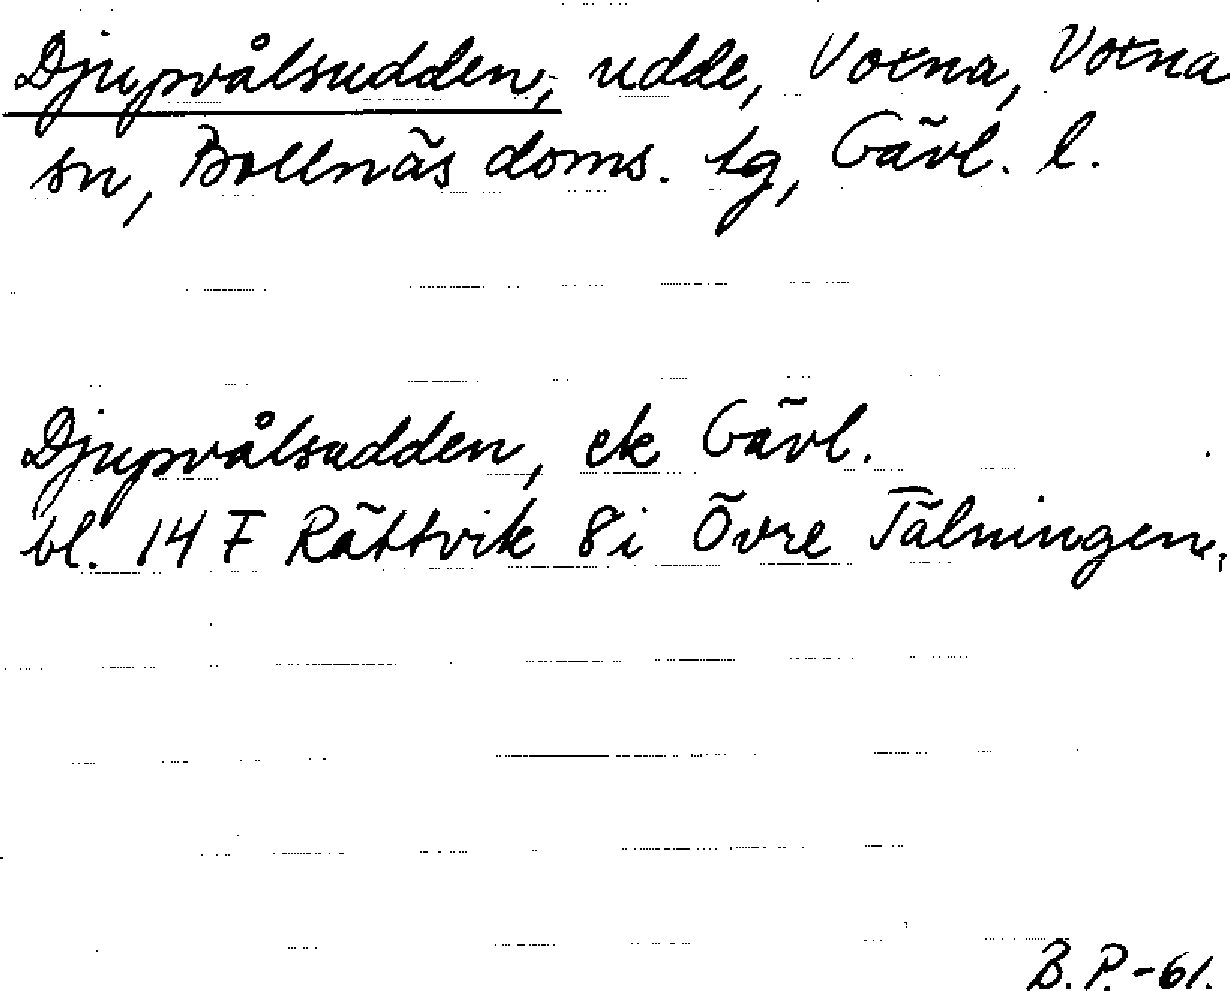 Djupvålsudden, udde, Voxna, Voxna
sn, Bollnäs doms. tg, Gävl. l.
Djupvålsudden, ek Gävl.
bl. 14 F Rättvik 8i Övre Tälningen.
B.P.-61.